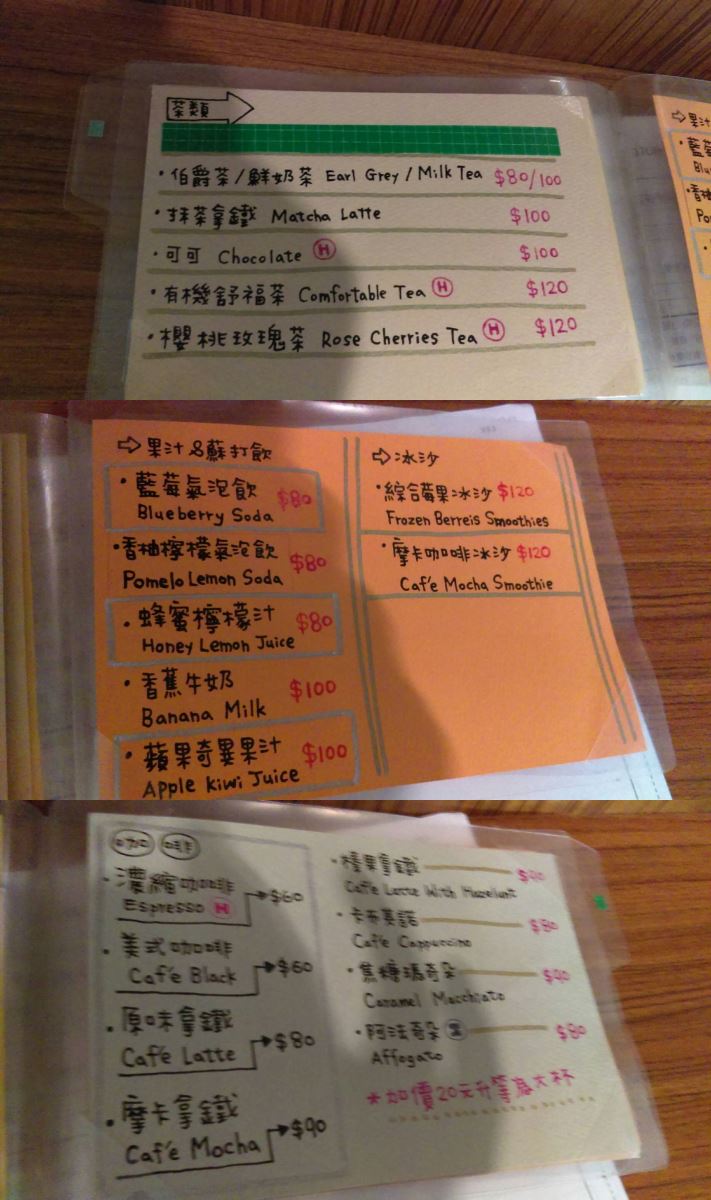 茶類
·伯爵茶/鮮奶茶 Earl Grey / Milk Tea $80/100
·抹茶拿鐵 Matcha Latte $100
·可可 Chocolate Ⓗ $100
·有機舒福茶 Comfortable Tea Ⓗ $120
·櫻桃玫瑰茶 Rose Cherries Tea Ⓗ $120
⇨果汁
·藍莓
Blu
·香柚
Po
⇨果汁&蘇打飲
·藍莓氣泡飲 $80
Blueberry Soda
·香柚檸檬氣泡飲 $80
Pomelo Lemon Soda
·蜂蜜檸檬汁 $80
Honey Lemon Juice
·香蕉牛奶 $100
Banana Milk
·蘋果奇異果汁 $100
Apple kiwi Juice
⇨冰沙
·綜合莓果冰沙 $120
Frozen Berreis Smoothies
·摩卡咖啡冰沙 $120
Caf'e Mocha Smoothie
咖啡
·濃縮咖啡
Espresso H →$60
·美式咖啡
Caf'e Black →$60
·原味拿鐵
Caf'e Latte →$80
·摩卡拿鐵
Caf'e Mocha →$90
·榛果拿鐵 $90
Caf'e Latte With Hazelunt
·卡布其諾 $80
Caf'e Cappuccino
·焦糖瑪奇朵 $90
Caramel Macchiato
·阿法奇朵 $80
Affogato
*加價20元升等為大杯